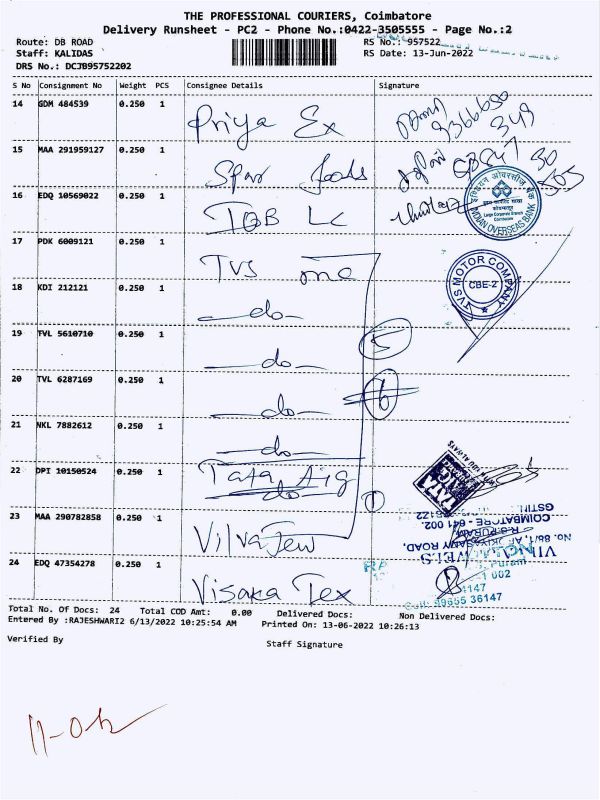 THE PROFESSIONAL COURIERS, Coimbatore
Delivery Runsheet - PC2 - Phone No.:0422-3505555 - Page No.:2
Route: DB ROAD RS No.: 957522
Staff: KALIDAS RS Date: 13-Jun-2022
DRS No.: DCJB95752202
S No Consignment No Weight PCS Consignee Details Signature
14 GDM 484539 0.250 1 Priya Ex
15 MAA 291959127 0.250 1 Spar
16 EDQ 10569022 0.250 1 IOB LC
17 PDK 6009121 0.250 1 TVS
18 KDI 212121 0.250 1 -do-
19 TVL 5610710 0.250 1 -do-
5
20 TVL 6287169 0.250 1 -do-
6
21 NKL 7882612 0.250 1 -do-
22 DPI 10150524 0.250 1 Tata Aig
1
23 MAA 290782858 0.250 1 Vilva Jew
24 EDQ 47354278 0.250 1 Visaka Tex
INDIAN OVERSEAS BANK
TVS MOTOR COMPANY
CBE-Z
COIMBATORE - 641 002.
36147
Total No. Of Docs: 24 Total COD Amt: 0.00 Delivered Docs: Non Delivered Docs:
Entered By :RAJESHWARI2 6/13/2022 10:25:54 AM Printed On: 13-06-2022 10:26:13
Verified By Staff Signature